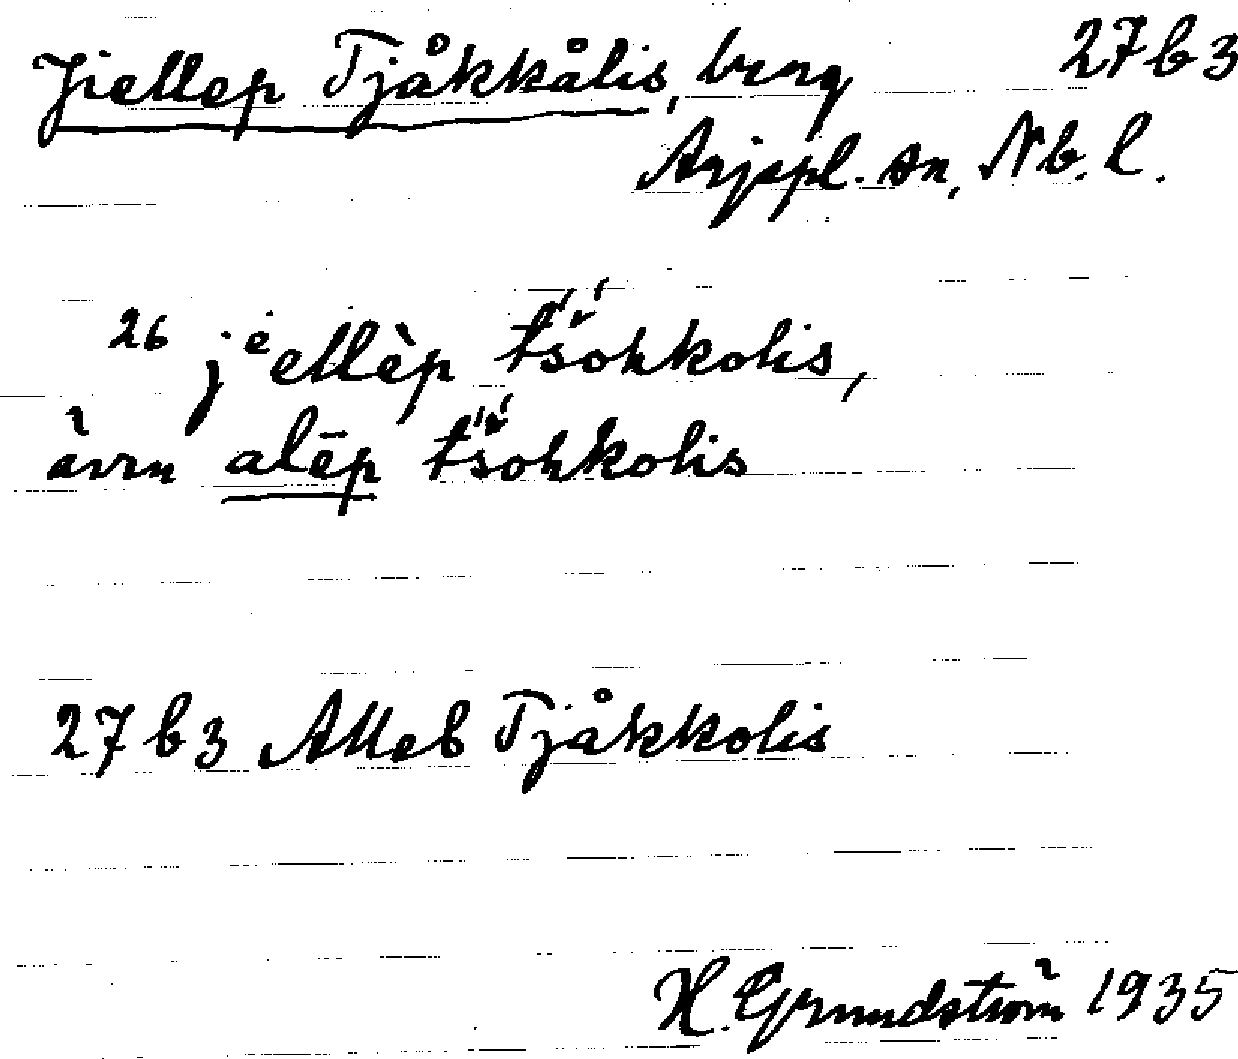 Jiellep Tjåkkålis, berg 27b3
Arjepl. sn, Nb. l.
26 jᵉellèp tš́ohkolis,
även alēp tš́ohkolis
27b3 Alleb Tjåkkolis
H. Grundström 1935